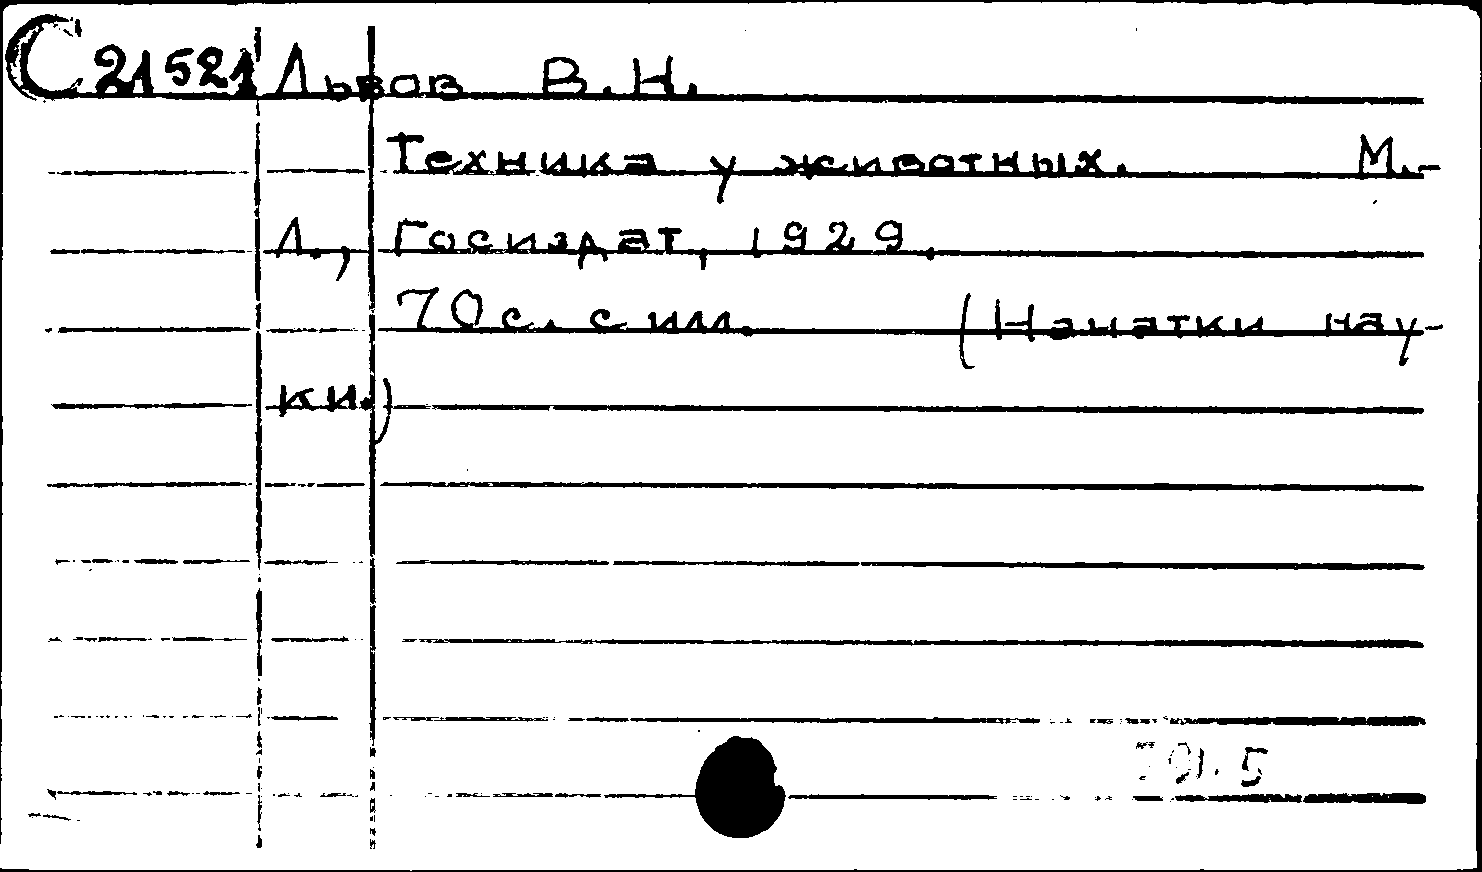 С 21521 Львов В.Н.
Техника у животных. М.-
Л., Госиздат, 1929.
70 с. с илл. (Начатки нау-
ки.)